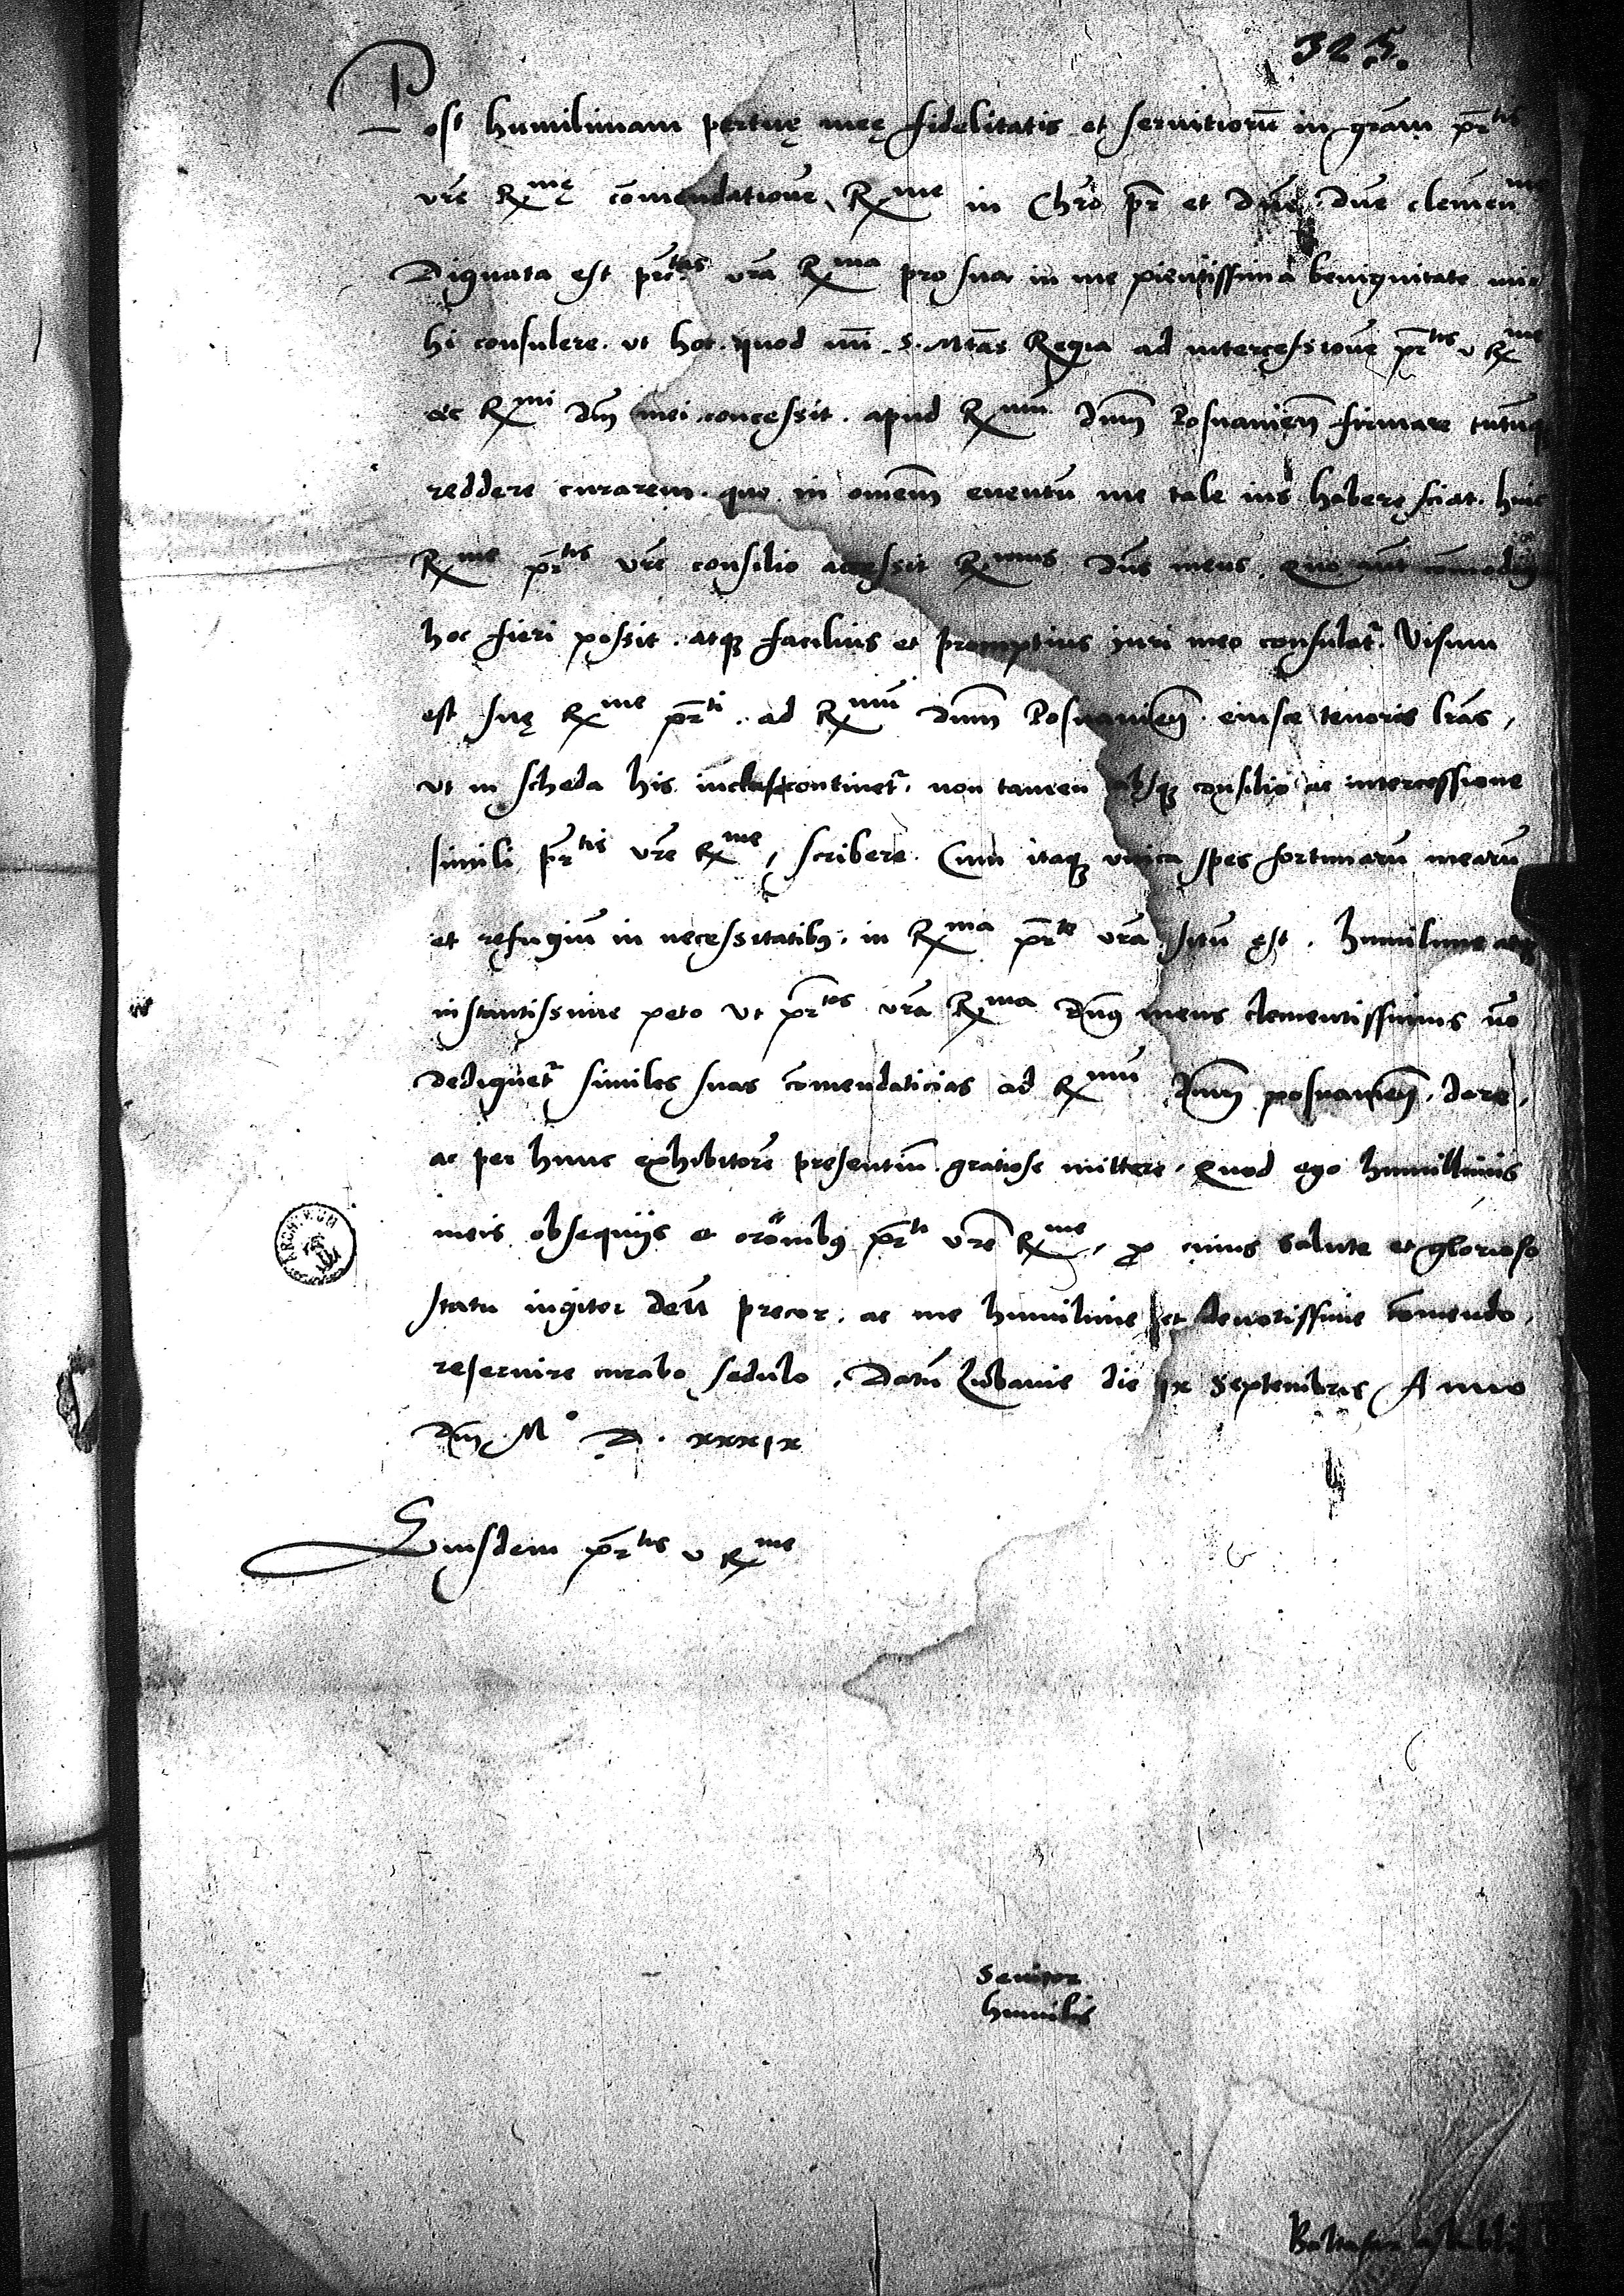 325.
Post humilimam perptuę meę fidelitatis et seruitiorũ in grãm pr̃tis
vrẽ Rxmę cõmendationẽ, Rxme in Chrõ pr̃ et Dñe Dñe clemẽn
Dignata est pr̃tas vrã Rxma pro sua in me pientissima benignitate mi-
hi consulere. vt hoc quod m̃i S. Mtãs Regia ad intercessionẽ pr̃tis v Rxme
ac Rxmi Dñi mei concessit. apud Rxmũ Dñm Posnanieñ firmare tutũq
reddere curarem. quo in omẽm euentũ me tale ius habere sciat. huic
Rxme pr̃tis vrẽ consilio accessit Rxmus Dñs meus. Quo aũt cõmodi9
hoc fieri possit. atq₃ facilius et promptius iuri meo consulat̃. Visum
est suę Rxme pr̃ti. ad Rxmũ Dñm Posnanieñ. eiusce tenoris lrãs,
vt in scheda his inclusa continet̃. non tamen absq₃ consilio ac intercessione
simili pr̃tis vrẽ Rxme, scribere. Cum itaq₃ vnica spes fortunarũ mearũ
et refugiũ in necessitatib9. in Rxma pr̃te vrã sitũ est. humilime atq₃
instantissime peto vt pr̃tas vrã Rxma Dñ9 meus clementissimus nõ
dedignet̃ similes suas cõmendaticias ad Rxmũ Dñm posnanieñ. dare,
ac per hunc exhibitorẽ presentiũ. gratiose mittere. Quod ego humillimis
meis obsequijs et orõnib9 pr̃ti vrẽ Rxme, ꝓ cuius salute et glorioso
statu iugiter Deũ precor. ac me humilime et deuotissime cõmendo,
reseruire curabo sedulo. Datũ Lubauie die ix Septembris Anno
Dñi M° D. xxxix
Eiusdem pr̃tis v Rxme
ARCHIVUM
Seruitor
humilis
Baltasar